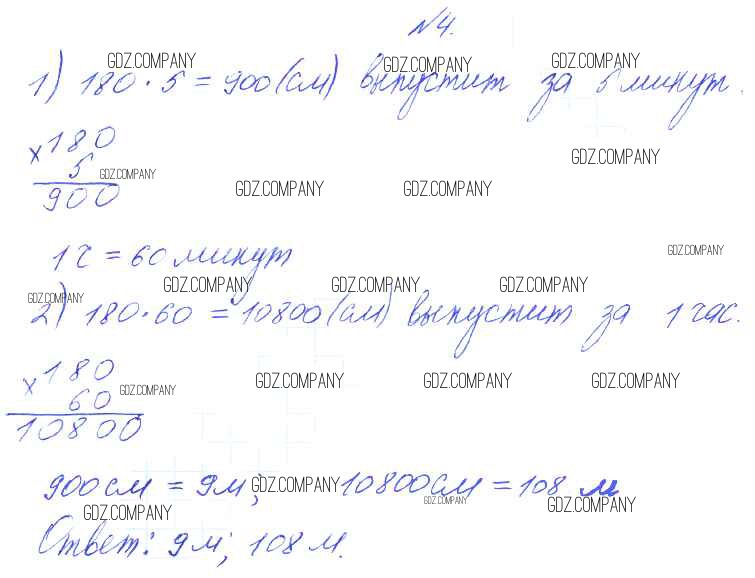 №4.
GDZ.COMPANY GDZ.COMPANY GDZ.COMPANY
1) 180 · 5 = 900 (см) выпустит за 5 минут.
× 180
5
GDZ.COMPANY
GDZ.COMPANY
900
GDZ.COMPANY GDZ.COMPANY
1 ч = 60 минут
GDZ.COMPANY
GDZ.COMPANY GDZ.COMPANY GDZ.COMPANY GDZ.COMPANY
2) 180 · 60 = 10800 (см) выпустит за 1 час.
× 180
60
GDZ.COMPANY GDZ.COMPANY GDZ.COMPANY GDZ.COMPANY
10800
900 см = 9 м; GDZ.COMPANY 10800 см = 108 м
GDZ.COMPANY GDZ.COMPANY GDZ.COMPANY
Ответ: 9 м; 108 м.